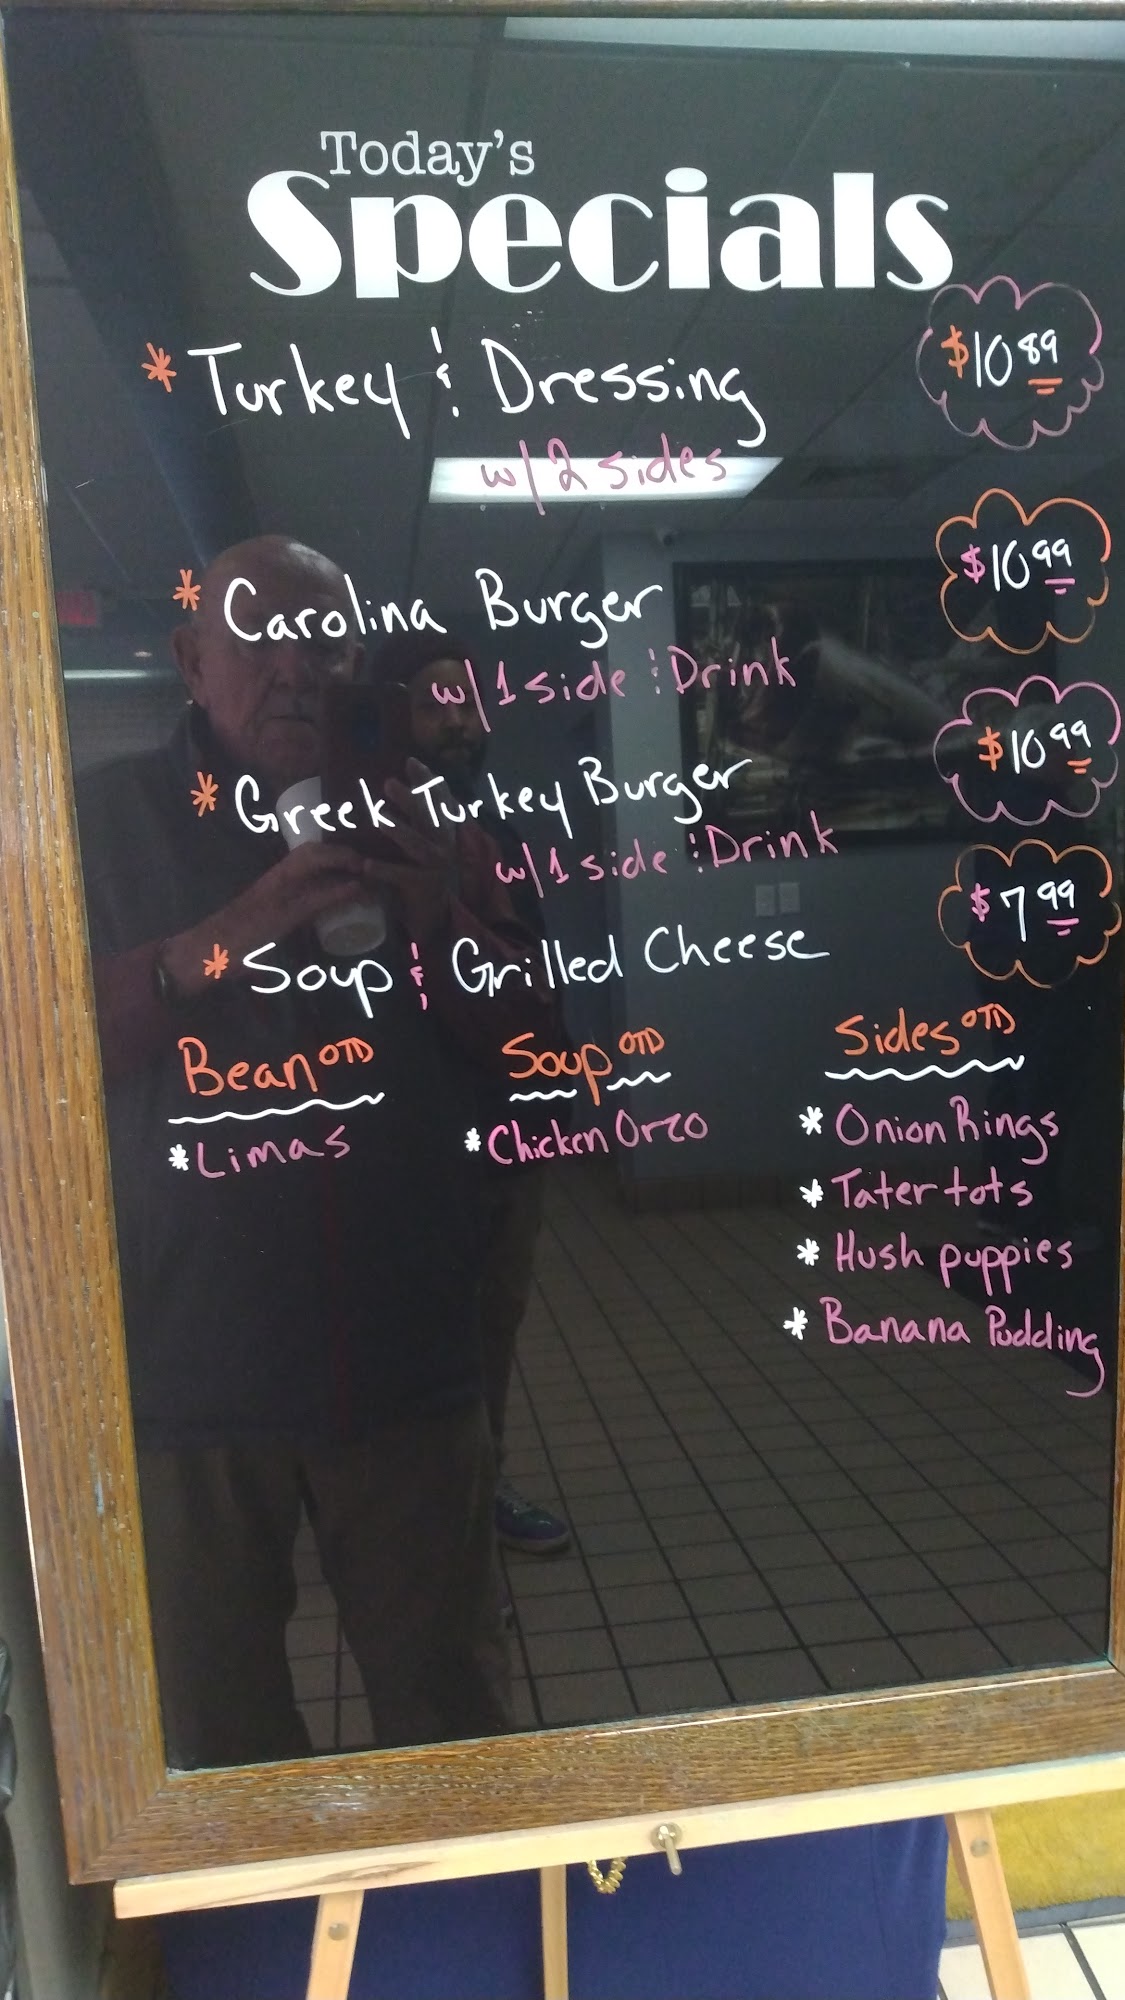 Today's
Specials
* Turkey & Dressing $10.89
w/2 sides
* Carolina Burger $10.99
w/1 side & Drink
* Greek Turkey Burger $10.99
w/1 side & Drink
* Soup & Grilled Cheese $7.99
Bean OTD
* Limas
Soup OTD
* Chicken Orzo
Sides OTD
* Onion Rings
* Tater tots
* Hush puppies
* Banana Pudding